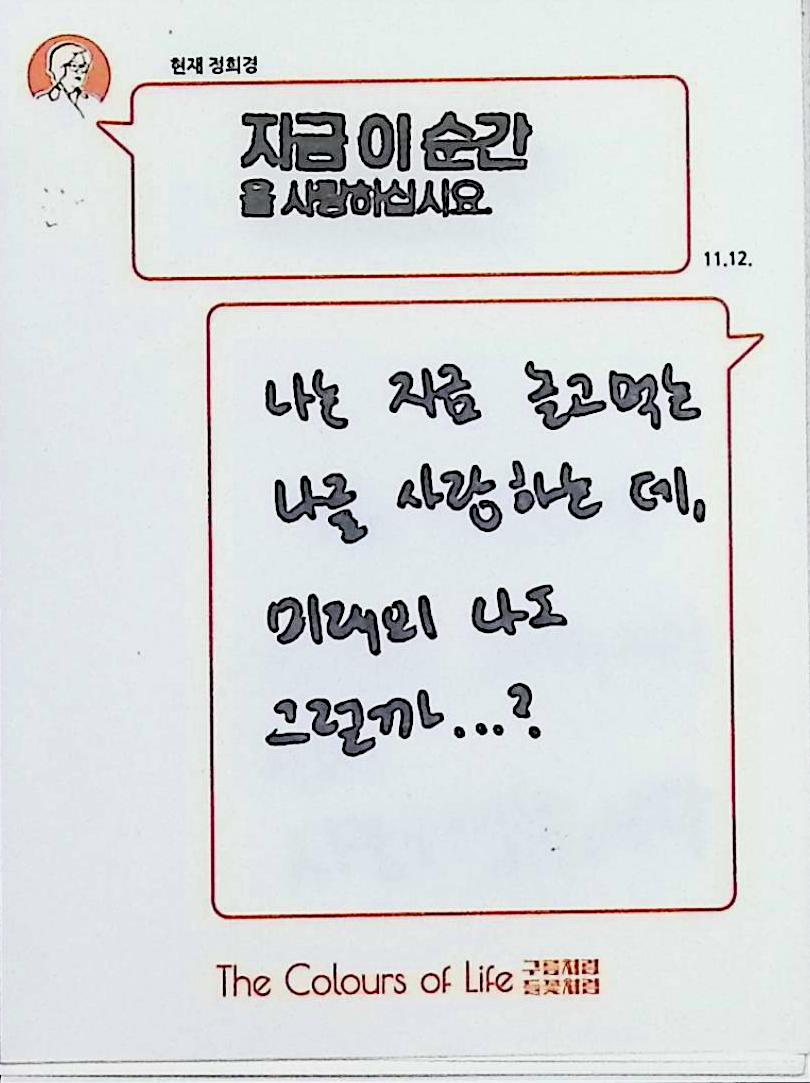 현재 정희경
지금 이 순간
을 사랑하십시요.
11.12.
나는 지금 놀고먹는
나를 사랑하는 데,
미래의 나도
그럴까...?
The Colours of Life 구름처럼
들꽃처럼